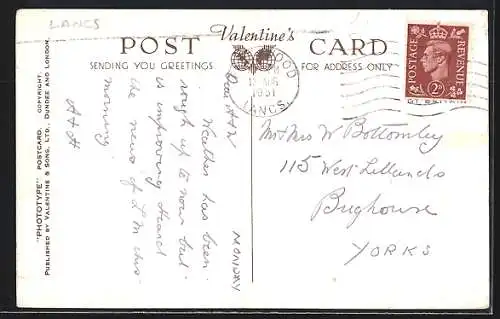 LANCS
Valentine's
POST CARD
SENDING YOU GREETINGS
FOR ADDRESS ONLY
"PHOTOTYPE" POSTCARD. COPYRIGHT.
PUBLISHED BY VALENTINE & SONS, LTD. DUNDEE AND LONDON.
1951
LANCS
POSTAGE
REVENUE
2D
MONDAY
Dear A & W
Weather has been
rough up to now but
is improving Heard
the news of L M this
morning
A & H
Mr & Mrs W Bottomley
115 West
Brighouse
YORKS